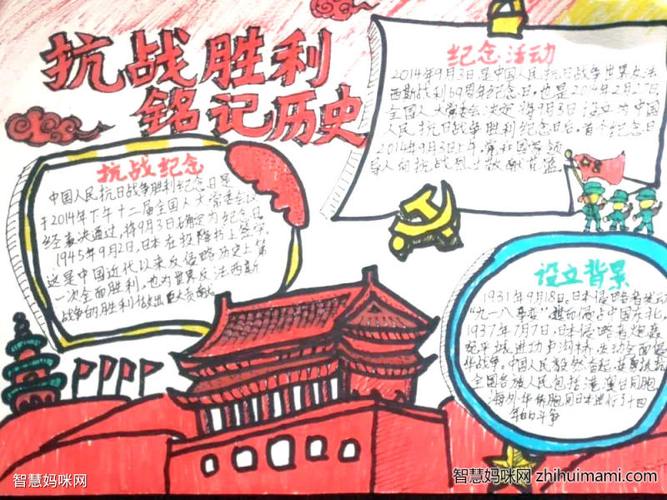 抗战胜利
铭记历史
纪念活动
2014年9月3日是中国人民抗日战争世界反法
西斯战利69周年纪念日，也是2014年2月27日
全国人大常委会决定将9月3日设立为中国
人民抗日战争胜利纪念日后，首个纪念日
2014年9月3日上午
抗战纪念
中国人民抗日战争胜利纪念日是
于2014年下午十二届全国人大常委会
经表决通过，将9月3日确定为纪念日
1945年9月2日，日本在投降书上签字
这是中国近代以来反侵略历史上第
一次全面胜利，也为世界反法西斯
战争的胜利做出巨大贡献
设立背景
1931年9月18日，日本侵略者发动
"九一八事变" 占中国东北。
1937年7月7日，日本侵略者炮轰
宛平城进攻卢沟桥，发动全面侵
华战争。中国人民毅然奋起
全国各族人民包括港澳台同胞
海外华侨同胞同日本进行了十四
年的斗争
智慧妈咪网
智慧妈咪网 zhihuimami.com